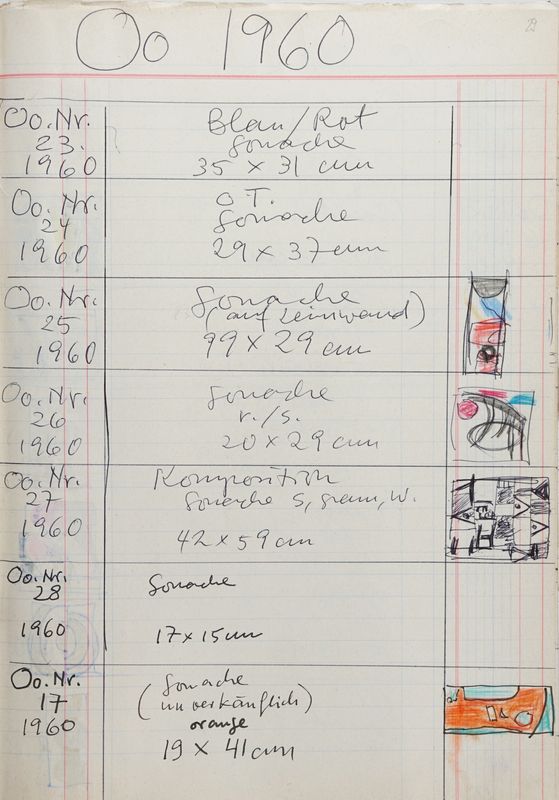 Oo 1960
Oo. Nr.
23.
1960
Blau/Rot
Gouache
35 x 31 cm
Oo. Nr.
24
1960
O.T.
Gouache
29 x 37 cm
Oo. Nr.
25
1960
Gouache
(auf Leinwand)
99 x 29 cm
Oo. Nr.
26
1960
Gouache
r./s.
20 x 29 cm
Oo. Nr.
27
1960
Komposition
Gouache S, grau, W.
42 x 59 cm
Oo. Nr.
28
1960
Gouache
17 x 15 cm
Oo. Nr.
17
1960
Gouache
(unverkänglich)
orange
19 x 41 cm